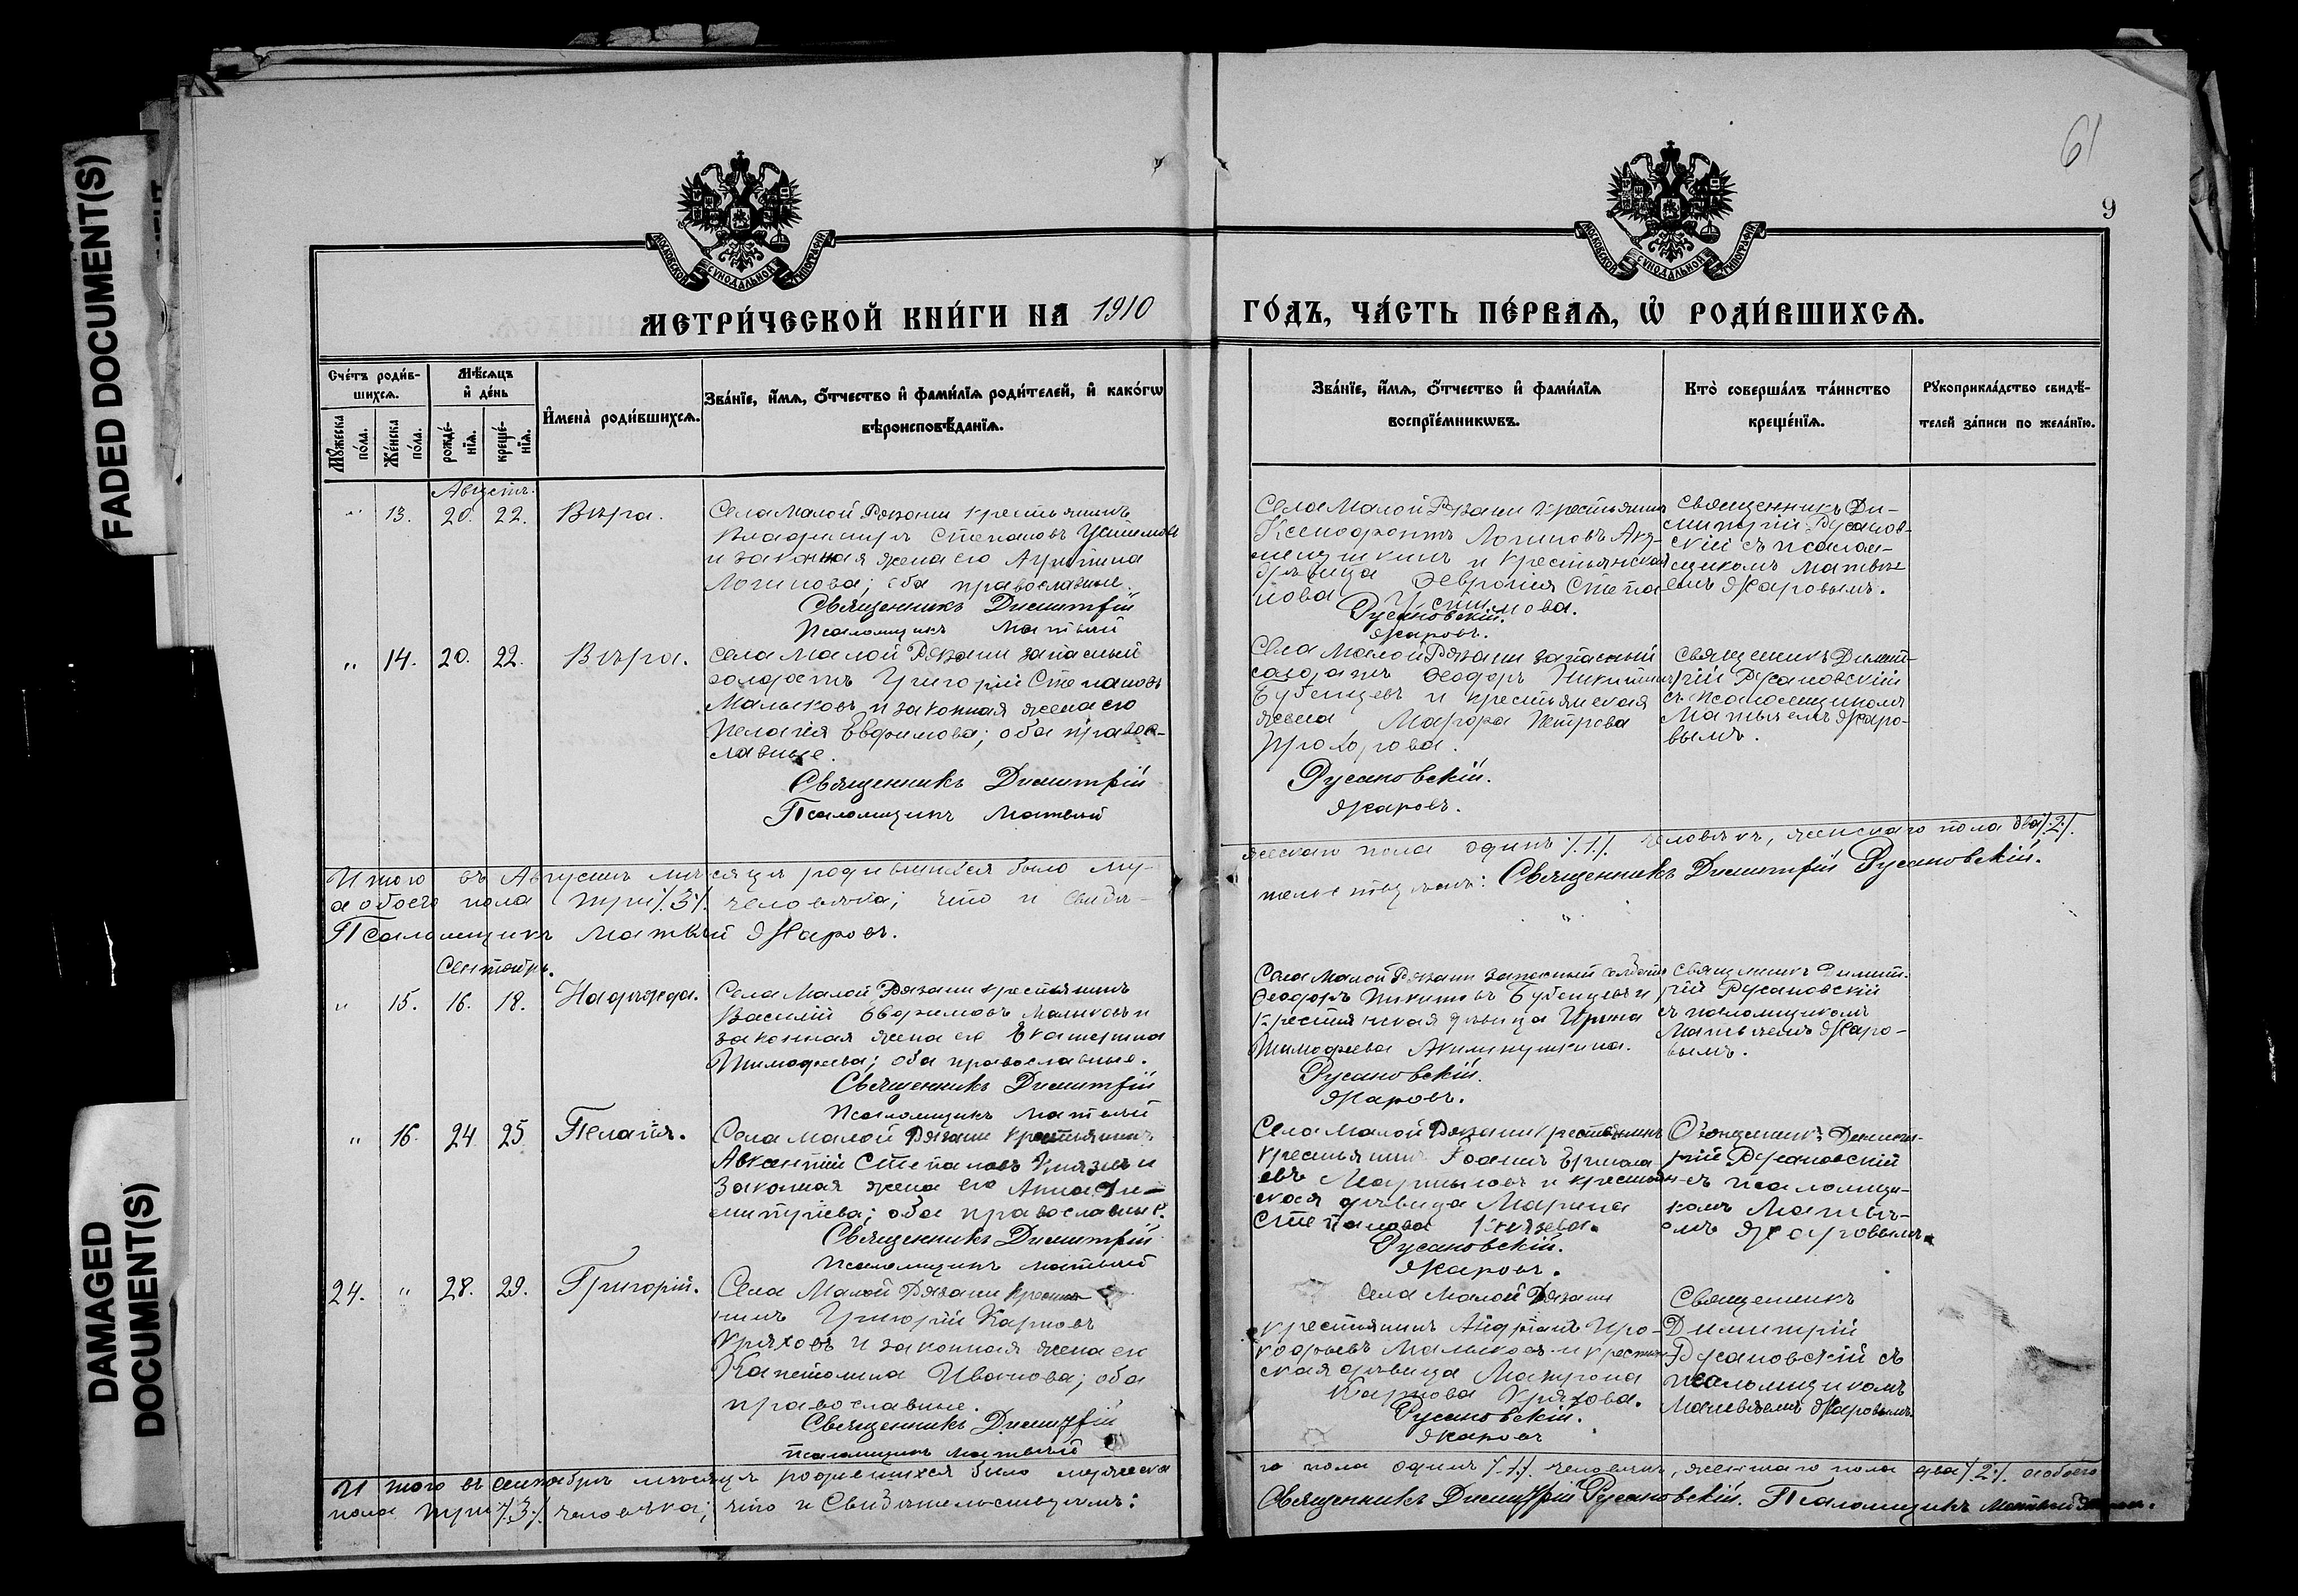 FADED DOCUMENT(S)
DAMAGED
DOCUMENT(S)
61
9
МОСКОВСКОЙ СѴНОДАЛЬНОЙ ТИПОГРАФІИ
МОСКОВСКОЙ СѴНОДАЛЬНОЙ ТИПОГРАФІИ
МЕТРИ́ЧЕСКОЙ КНИ́ГИ НА 1910
ГО́ДЪ, ЧА́СТЬ ПЕ́РВАѦ, Ѡ҆ РОДИ́ВШИХСѦ.
Сче́тъ роди́в-
шихсѧ.
Мꙋ́жеска по́ла.
Же́нска по́ла.
Мѣ́сѧцъ
и҆ де́нь
рожде́-
нїѧ.
креще́-
нїѧ.
И҆мена̀ роди́вшихсѧ.
Зва́нїе, и҆́мѧ, ѻ҆́тчество и҆ фами́лїѧ роди́телей, и҆ како́гѡ
вѣроисповѣ́данїѧ.
Зва́нїе, и҆́мѧ, ѻ҆́тчество и҆ фами́лїѧ
воспрїе́мникѡвъ.
Кто̀ соверша́лъ та́инство
креще́нїѧ.
Рꙋкоприкла́дство свидѣ́-
телей за́писи по жела́нїю.
Августъ.
" 13. 20. 22. Вѣра.
Села Малой Рязани крестьянинъ
Владимиръ Степановъ Устимовъ
и законная жена его
Логинова; оба православные.
Священникъ Димитрій
Псаломщикъ Матвѣй
Села Малой Рязани крестьянинъ
Ксенофонтъ Логиновъ
и крестьянская
дѣвица Февронія Степа
нова Устимова.
Русановскій.
Жаровъ.
Священникъ Ди-
митрій Русанов-
скій съ псалом-
щикомъ Матвѣ
емъ Жаровымъ.
" 14. 20. 22. Вѣра.
Села Малой Рязани запасный
солдатъ Григорій Степановъ
Мальковъ и законная жена его
Пелагія Евфимова; оба правос-
лавные.
Священникъ Димитрій
Псаломщикъ Матвѣй
Села Малой Рязани запасный
солдатъ Феодоръ Никитинъ
Бубенцевъ и крестьянская
жена Петрова
Прохорова.
Русановскій.
Жаровъ.
Священникъ Димит-
рій Русановскій
съ псаломщикомъ
Матвѣемъ Жаро-
вымъ.
Итого въ Августѣ мѣсяцѣ родившихся было му-
жескаго пола одинъ /.1./. человѣкъ, женскаго пола два /.2./.
а обоего пола три /.3./. человѣка; что и свидѣ-
тельствуемъ: Священникъ Димитрій Русановскій.
Псаломщикъ Матвѣй Жаровъ.
Сентябрь.
" 15. 16. 18. Надежда.
Села Малой Рязани крестьянинъ
Василій Евфимовъ Мальковъ и
законная жена его Екатерина
Тимофеева; оба православные.
Священникъ Димитрій
Псаломщикъ Матвѣй
Села Малой Рязани запасный солдатъ
Феодоръ Никитовъ Бубенцевъ и
крестьянская дѣвица Ирина
Тимофеева Акилинушкина.
Русановскій.
Жаровъ.
Священникъ Димит-
рій Русановскій
съ псаломщикомъ
Матвѣемъ Жаро-
вымъ.
" 16. 24 25 Пелагія.
Села Малой Рязани крестьянинъ
Авксентій Степановъ Князевъ и
законная жена его Анна Ди-
митріева; оба православные.
Священникъ Димитрій
Псаломщикъ Матвѣй
Села Малой Рязани крестьянинъ
крестьянинъ Іоаннъ Ермола
евъ Мартыновъ и крестьян-
ская дѣвица Марина
Степанова Князева.
Русановскій.
Жаровъ.
Священникъ Димит-
рій Русановскій
съ псаломщи-
комъ Матвѣ-
емъ Жаровымъ.
24. " 28. 29. Григорій.
Села Малой Рязани крестья
нинъ Григорій Карповъ
Кряховъ и законная жена его
Капетолина Иванова; оба
православные.
Священникъ Димитрій
Псаломщикъ Матвѣй
Села Малой Рязани
крестьянинъ Андріанъ Про-
кофьевъ Мальковъ и крестьян-
ская дѣвица Матрона
Карпова Кряхова.
Русановскій.
Жаровъ
Священникъ
Димитрій
Русановскій съ
псаломщикомъ
Матвѣемъ Жаровымъ.
Итого въ сентябрѣ мѣсяцѣ родившихся было мужеска
го пола одинъ /.1./. человѣкъ, женскаго пола два /.2./. а обоего
пола три /.3./. человѣка; что и Свидѣтельствуемъ:
Священникъ Димитрій Русановскій. Псаломщикъ Матвѣй Жаровъ.